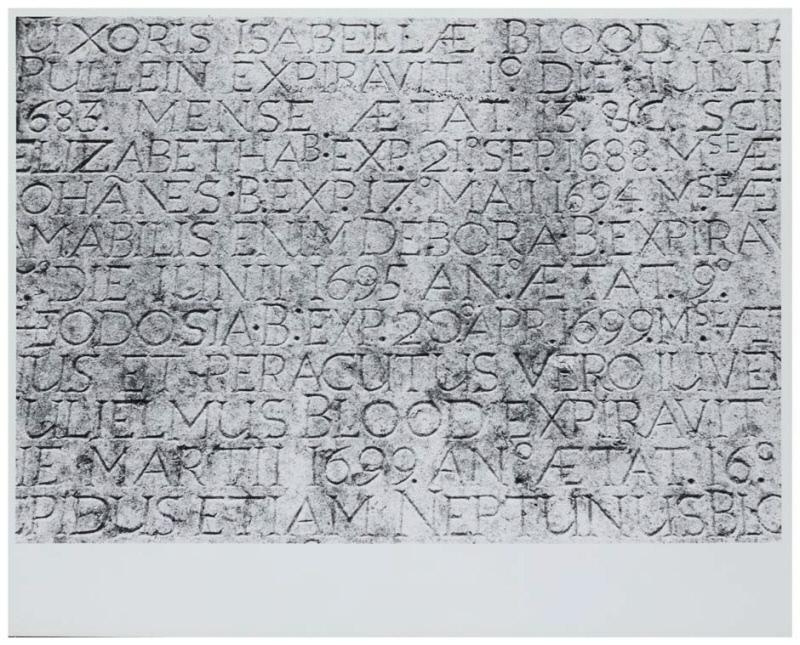 UXORIS ISABELLÆ BLOOD ALIA
PULLEIN EXPIRAVIT 1° DIE IULII
1683. MENSE ÆTAT. 13. &C. SCI
ELIZABETHA B: EXP. 21° SEP. 1688. M^SE Æ
OHÂNES·B: EXP. 17° MAII 1694. M^SE ÆT
AMABILIS ENIM DEBORA·B: EXPIRAV
9° DIE IUNII 1695 AN° ÆTAT. 9°
ÆODOSIA·B: EXP. 20° APR. 1699. M^SE ÆT
IUS ET PERACUTUS VERO IUVEN
ULIELMUS BLOOD EXPIRAVIT
IE MARTII 1699. AN° ÆTAT. 16°
UPIDUS ETIAM NEPTUNIUS BLO